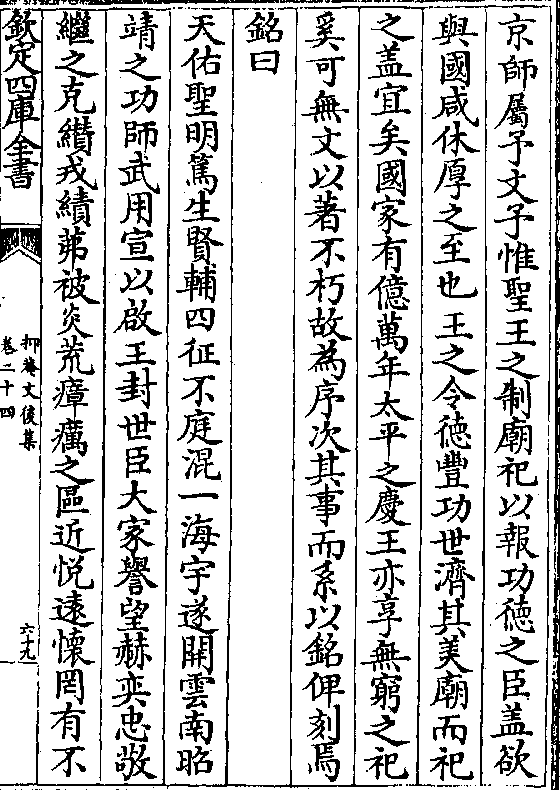 京師屬予文予惟聖王之制廟祀以報功徳之臣盖欲
與國咸休厚之至也王之令徳豐功世濟其美廟而祀
之盖宜矣國家有億萬年太平之慶王亦享無窮之祀
奚可無文以著不朽故為序次其事而系以銘俾刻焉
銘曰
天佑聖明篤生賢輔四征不庭混一海宇遂開雲南昭
靖之功師武用宣以啟王封世臣大家譽望赫奕忠敬
繼之克纘戎績茀被炎荒瘴癘之區近悦遠懷罔有不
欽定四庫全書
抑菴文後集
卷二十四
六十九